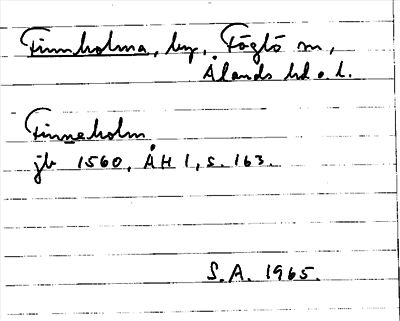 Finnholma, by, Föglö sn,
Ålands hd o. l.
Finneholm
jb 1560, ÅH 1, s. 163.
S.A. 1965.